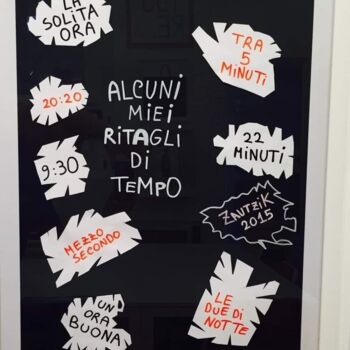 LA
SOLITA
ORA
TRA
5
MINUTI
20:20
ALCUNI
MIEI
RITAGLI
DI
TEMPO
9:30
22
MINUTI
ZAUTZIK
2015
MEZZO
SECONDO
UN
ORA
BUONA
LE
DUE DI
NOTTE